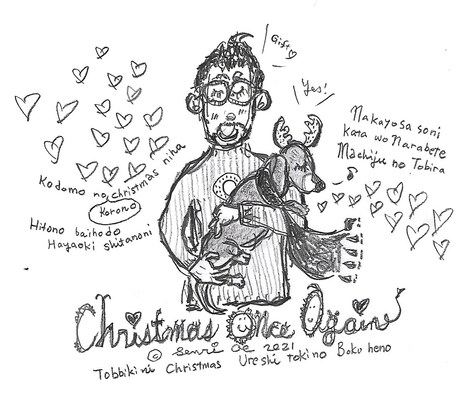 Gift
Yes!
Nakayosa soni
Kata wo Narabete
Machijū no Tobira
Kodomo no christmas niha
Korono
Hitono baihodo
Hayaoki shitanoni
Christmas Once Again
© Senri Oe 2021
Tobbikini Christmas Ureshi tokino Boku heno